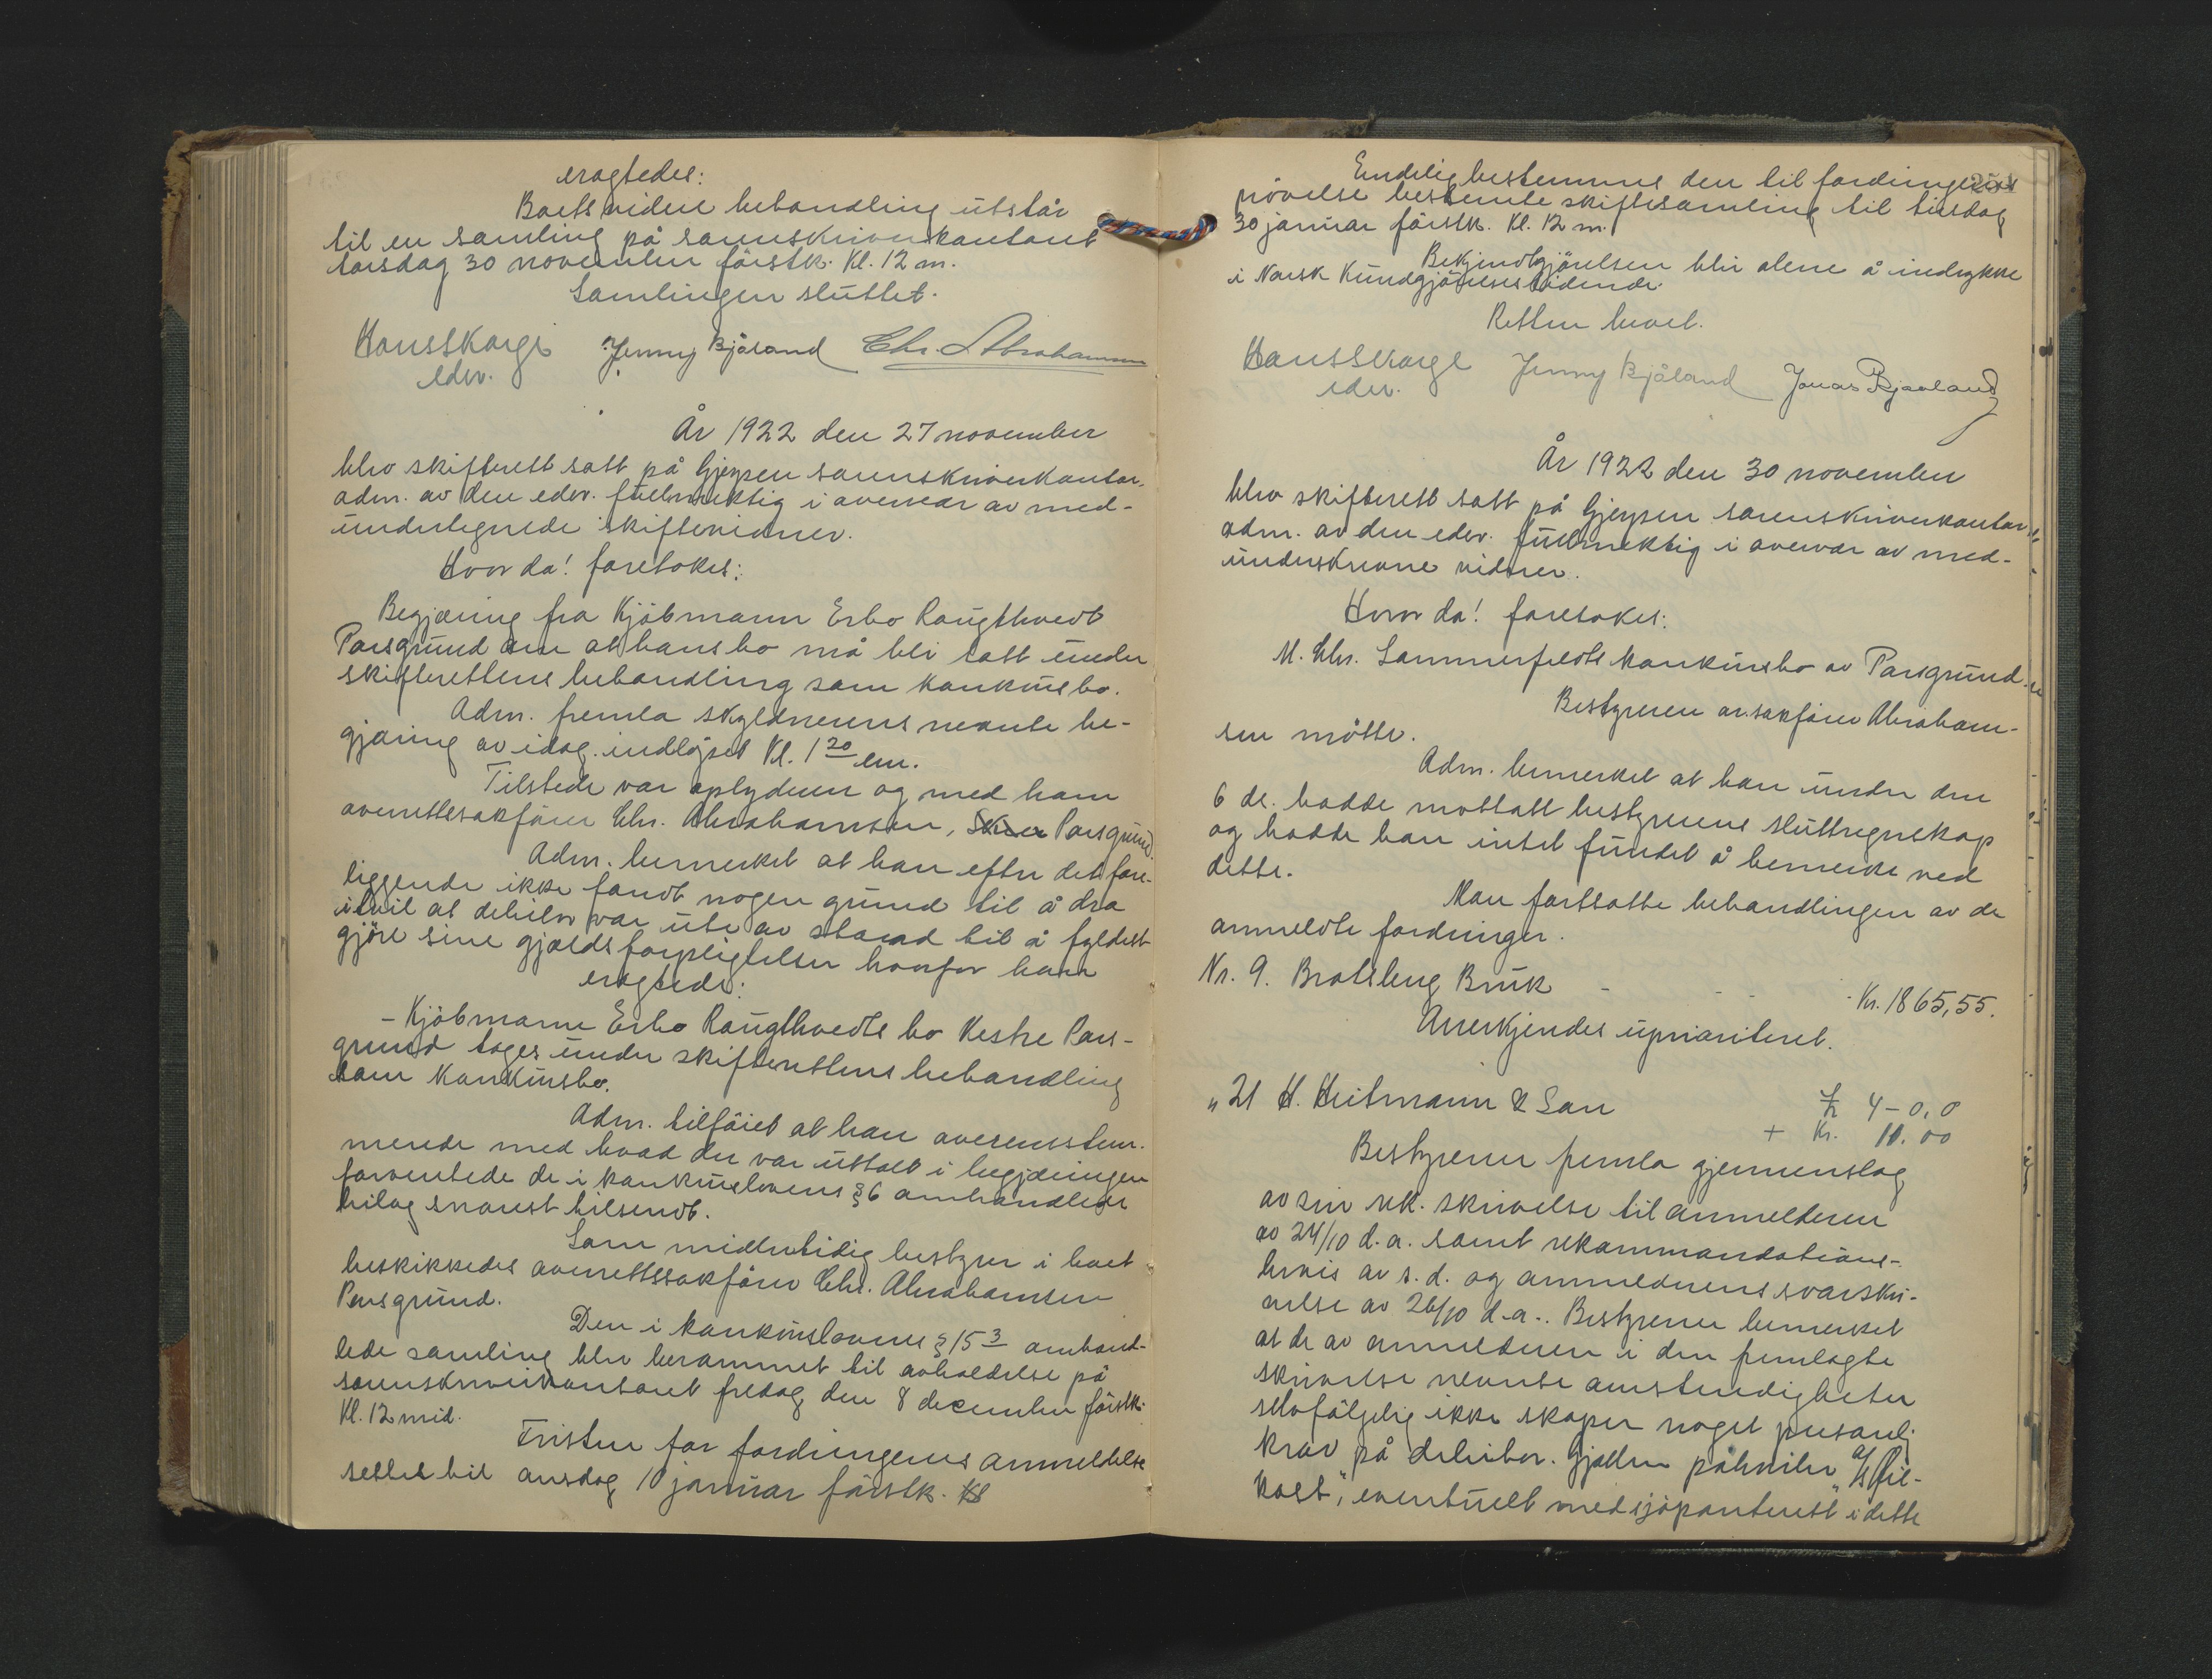 eragtedes:
Boets videre behandling utstår
til en samling på sorenskriverkontoret
torsdag 30 november förstk. Kl. 12 m.
Samlingen sluttet.
Hans Skarge Jenny Bjåland Chr. Abrahamsen
edsv.
År 1922 den 27 november
blev skifterett satt på Gjerpen sorenskriverkontor,
adm. av den edsv. fuldmektig i overvær av med-
undertegnede skiftevidner.
Hvor da! foretokes:
Begjæring fra Kjöbmann Erbo Raugthvedt
Porsgrund om at hans bo må bli tatt under
skifterettens behandling som konkursbo.
Adm. fremla skyldnerens nevnte be-
gjæring av idag indlöpet Kl. 1 20 em.
Tilstede var oplyderen og med ham
overrettssakförer Chr. Abrahamsen, Porsgrund.
Adm. bemerket at han efter det fore-
liggende ikke fandt nogen grund til å dra
i tvil at debitor var ute av stand til å fyldest-
gjöre sine gjældsforpligtelser hvorfor han
eragtede:
- Kjöbmann Erbo Raugthvedts bo Vestre Pors-
grund tages under skifterettens behandling
som Konkursbo.
Adm. tilföiet at han overensstem-
mende med hvad der var uttalt i begjæringen
forventede de i konkurslovens § 6 omhandlede
bilag snarest tilsendt.
Som midlertidig bestyrer i boet
beskikkedes overrettssakförer Chr. Abrahamsen
Porsgrund.
Den i konkurslovens § 15 3 omhand-
lede samling blev berammet til avholdelse på
sorenskriverkontoret fredag den 8 december förstk.
Kl. 12 mid.
Fristen for fordringenes anmeldelse
settes til onsdag 10 januar förstk. Kl
Endelig bestemmes den til fordringenes
prövelse bestemte skiftesamling til tirsdag
30 januar förstk. Kl. 12 m.
Bekjendtgjörelsen blir alene å indrykke
i Norsk Kundgjörelsestidende.
Retten hevet.
Hans Skarge Jenny Bjåland Jonas Bjaaland
edsv.
År 1922 den 30 november
blev skifterett satt på Gjerpen sorenskriverkontor,
adm. av den edsv. fuldmektig i overvær av med-
underskrevne vidner.
Hvor da! foretokes:
M. Chr. Sammerfeldts konkursbo av Porsgrund.
Bestyreren o.r.sakförer Abraham-
sen mötte.
Adm. bemerket at han under den
6 ds. hadde mottatt bestyrerens sluttregnskap
og hadde han intet fundet å bemerke ved
dette.
Man fortsatte behandlingen av de
anmeldte fordringer.
Nr. 9. Bratsberg Bruk - - - - Kr. 1865,55.
Anerkjendes uprioritert.
" 21 H. Heitmann & Sön £ 4-0,0
+ Kr. 11.00
Bestyreren fremla gjennemslag
av sin rek. skrivelse til anmelderen
av 24/10 d.a. samt rekommandations-
bevis av s.d. og anmelderens svarskri-
velse av 26/10 d.a.. Bestyreren bemerket
at de av anmelderen i den fremlagte
skrivelse nevnte omstendigheter
selvfölgelig ikke skaper noget personlig
krav på debitor. Gjælden påhviler "A/S
kost", eventuelt med sjöpanterett i dette